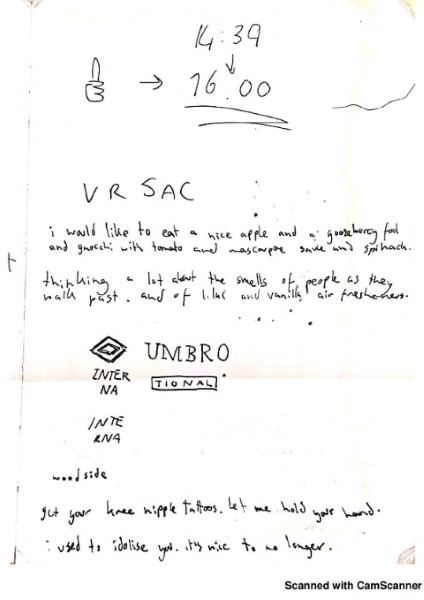 14:39
16.00
VR SAC
i would like to eat a nice apple and a gooseberry fool
and gnocchi with tomato and mascarpone sauce and spinach.
thinking a lot about the smells of people as they
walk past. and of lilac and vanilla air fresheners.
UMBRO
INTER
NA
TIONAL
INTE
RNA
woodside
get your knee nipple tattoos. let me hold your hand.
i used to idolise you. it's nice to no longer.
Scanned with CamScanner